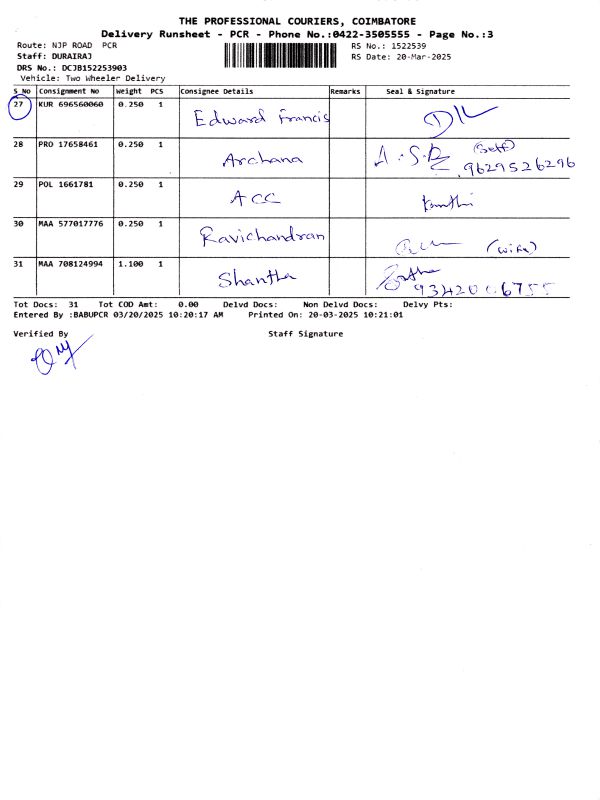 THE PROFESSIONAL COURIERS, COIMBATORE
Delivery Runsheet - PCR - Phone No.:0422-3505555 - Page No.:3
Route: NJP ROAD PCR RS No.: 1522539
Staff: DURAIRAJ RS Date: 20-Mar-2025
DRS No.: DCJB152253903
Vehicle: Two Wheeler Delivery
S No Consignment No Weight PCS Consignee Details Remarks Seal & Signature
27 KUR 696560060 0.250 1 Edward Francis
28 PRO 17658461 0.250 1 Archana A.S.R (Self) 9629526296
29 POL 1661781 0.250 1 ACC
30 MAA 577017776 0.250 1 Ravichandran (wife)
31 MAA 708124994 1.100 1 Shantha
Tot Docs: 31 Tot COD Amt: 0.00 Delvd Docs: Non Delvd Docs: Delvy Pts:
Entered By :BABUPCR 03/20/2025 10:20:17 AM Printed On: 20-03-2025 10:21:01
Verified By Staff Signature